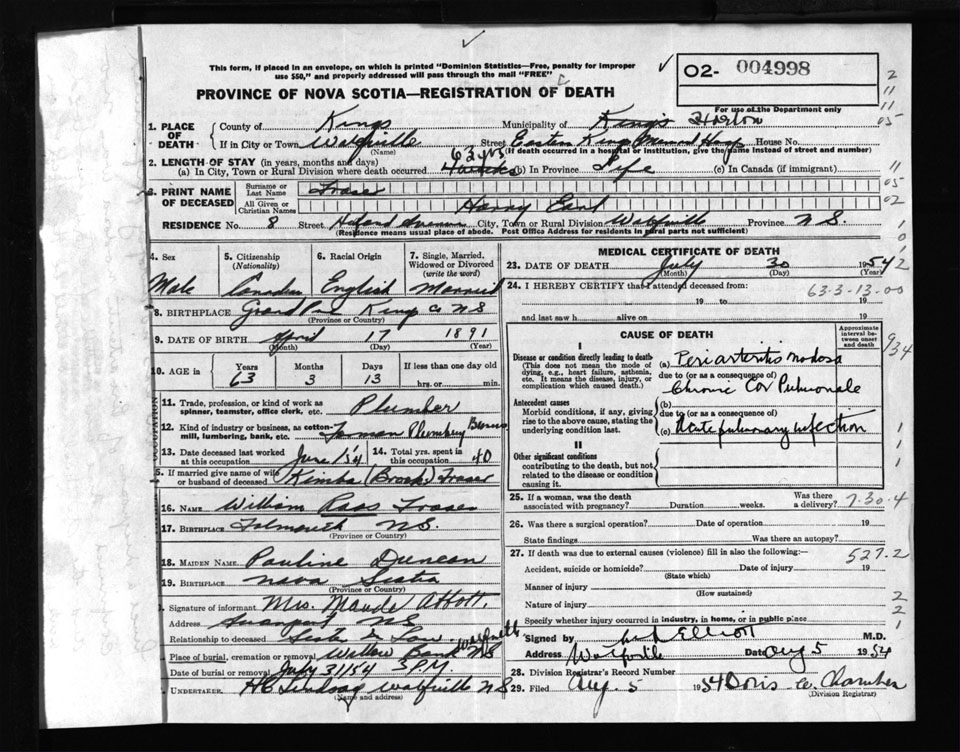 This form, if placed in an envelope, on which is printed "Dominion Statistics—Free, penalty for improper
use $50," and properly addressed will pass through the mail "FREE"
O2- 004998
For use of the Department only
PROVINCE OF NOVA SCOTIA—REGISTRATION OF DEATH
2
11
11
05
1. PLACE OF DEATH
County of Kings Municipality of Kings Horton
If in City or Town Wolfville Street Eastern Kings Hosp House No.
(Name) (If death occurred in a hospital or institution, give the name instead of street and number)
2. LENGTH OF STAY (in years, months and days) 63 yrs
(a) In City, Town or Rural Division where death occurred (b) In Province Life (c) In Canada (if immigrant)
11
05
02
3. PRINT NAME OF DECEASED
Surname or Last Name Fraser
All Given or Christian Names Harry Earl
RESIDENCE No. 8 Street City, Town or Rural Division Wolfville Province N.S.
(Residence means usual place of abode. Post Office Address for residents in rural parts not sufficient)
1
0
1
2
4. Sex 5. Citizenship (Nationality) 6. Racial Origin 7. Single, Married, Widowed or Divorced (write the word)
Male Canadian English Married
8. BIRTHPLACE Grand Pre Kings Co N S
(Province or Country)
9. DATE OF BIRTH April 17 1891
(Month) (Day) (Year)
10. AGE in Years Months Days If less than one day old
63 3 13 hrs. or min.
OCCUPATION
11. Trade, profession, or kind of work as spinner, teamster, office clerk, etc. Plumber
12. Kind of industry or business, as cotton-mill, lumbering, bank, etc. Plumbing
13. Date deceased last worked at this occupation June 1/54 14. Total yrs. spent in this occupation 40
5. If married give name of wife or husband of deceased Fraser
16. NAME William Ross Fraser
17. BIRTHPLACE Falmouth N.S.
(Province or Country)
18. MAIDEN NAME Pauline Duncan
19. BIRTHPLACE Nova Scotia
(Province or Country)
Signature of informant Mrs. Maude Abbott.
Address Avonport N S
Relationship to deceased Sister in Law
Place of burial, cremation or removal Willow Bank Wolfville N S
Date of burial or removal July 31/54 3 P.M.
UNDERTAKER H C Lindsay Wolfville N S
(Name and address)
MEDICAL CERTIFICATE OF DEATH
23. DATE OF DEATH July 30 1954
(Month) (Day) (Year)
24. I HEREBY CERTIFY that I attended deceased from:
63-3-13-00
19 to 19
and last saw h alive on 19
CAUSE OF DEATH
Approximate interval between onset and death
934
I
Disease or condition directly leading to death
(This does not mean the mode of dying, e.g., heart failure, asthenia, etc. It means the disease, injury, or complication which caused death.)
(a) Periarteritis nodosa
due to (or as a consequence of)
Chronic Cor Pulmonale
Antecedent causes
Morbid conditions, if any, giving rise to the above cause, stating the underlying condition last.
(b)
due to (or as a consequence of)
(c) Acute pulmonary infection
II
Other significant conditions
contributing to the death, but not related to the disease or condition causing it.
1
1
1
1
25. If a woman, was the death associated with pregnancy? Duration weeks. Was there a delivery?
7-30-4
26. Was there a surgical operation? Date of operation 19
State findings Was there an autopsy?
27. If death was due to external causes (violence) fill in also the following:—
527.2
Accident, suicide or homicide? Date of injury 19
(State which)
Manner of injury
(How sustained)
Nature of injury
2
2
1
Specify whether injury occurred in industry, in home, or in public place
Signed by Elliott M.D.
Address Wolfville Date Aug 5 1954
28. Division Registrar's Record Number
29. Filed Aug. 5 1954 Doris
(Division Registrar)